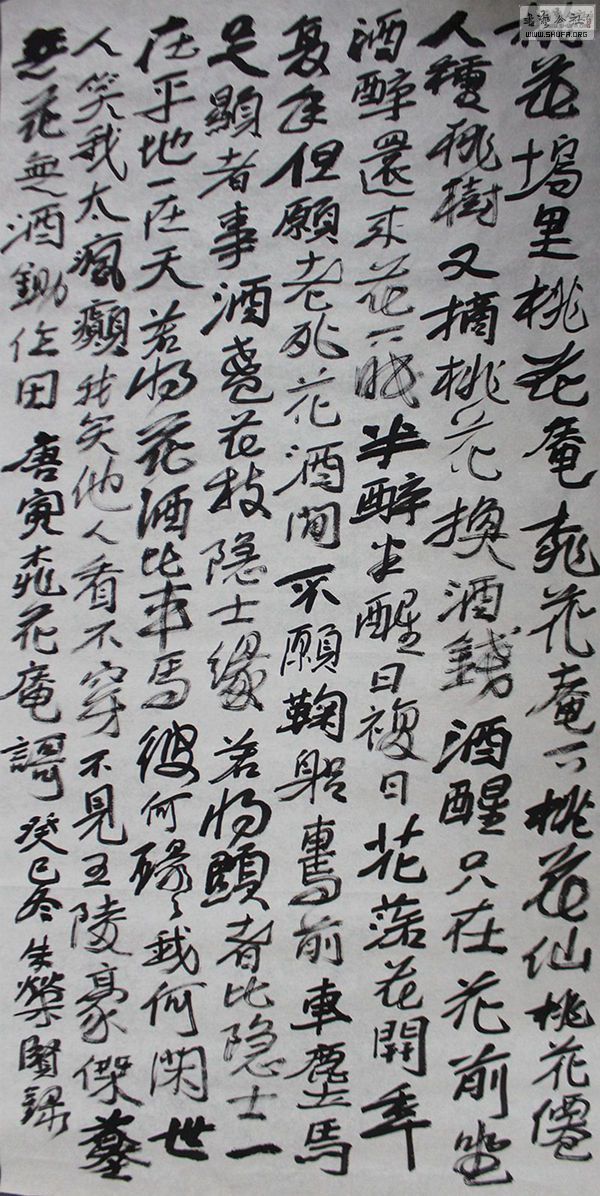 桃花塢里桃花庵桃花庵下桃花仙桃花僊
人種桃樹又摘桃花換酒錢酒醒只在花前坐
酒醉還来花下眠半醉半醒日複日花落花開年
复年但願老死花酒間不願鞠躬車馬前車塵馬
足顯者事酒盞花枝隐士缘若将顯者比隐士一
在平地一在天若将花酒比車馬彼何碌々我何閑世
人笑我太瘋癲我笑他人看不穿不見五陵豪傑墓
無花無酒鋤作田 唐寅桃花庵謌 癸巳冬朱榮賢錄
WWW.SHUFA.ORG